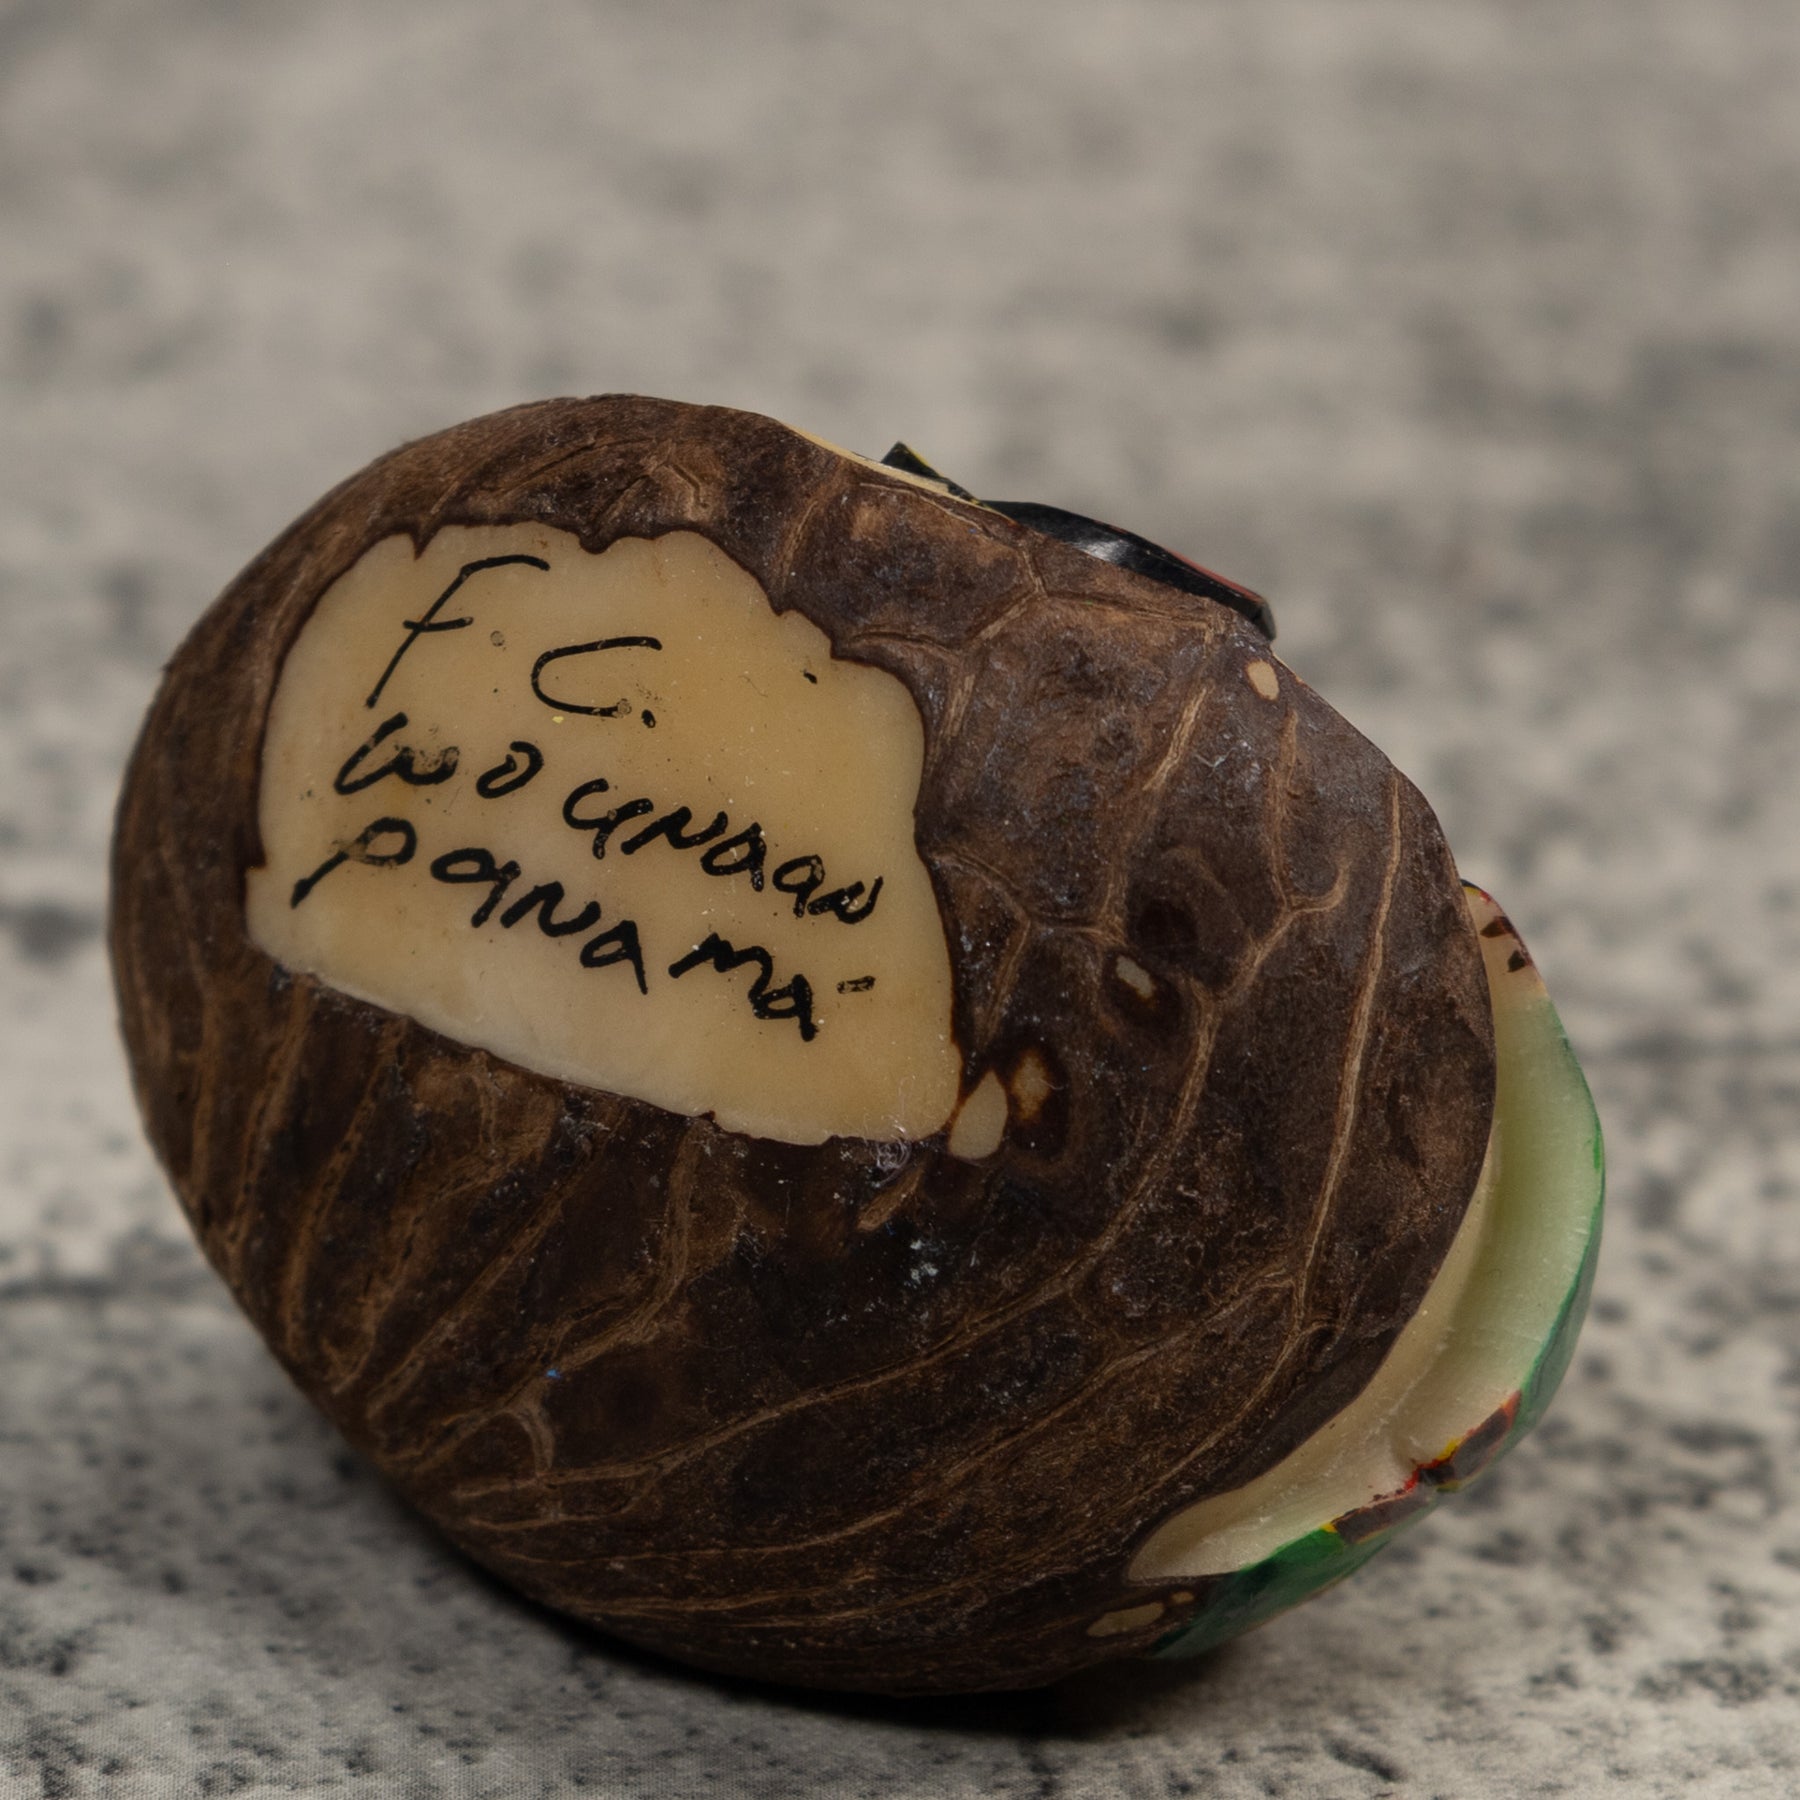 F. C.
Wounaan
Panama-